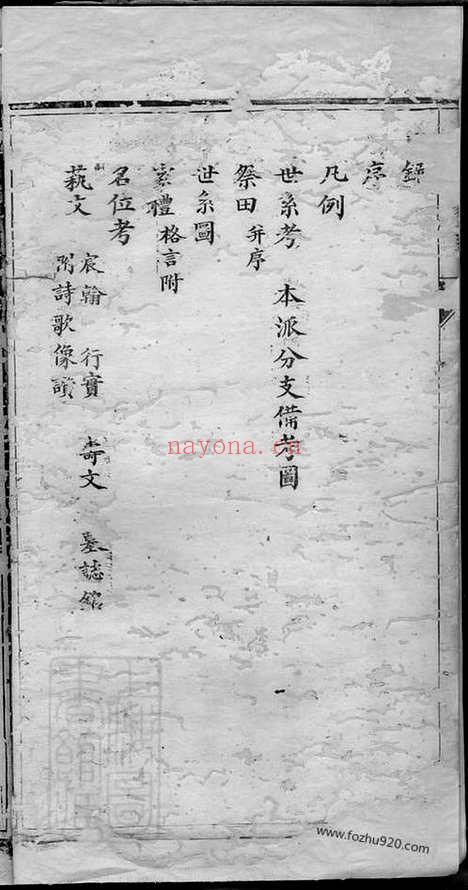 錄
序
凡例
世系考 本派分支備考圖
祭田 并序
世系圖
家禮 格言附
名位考
藝文 宸翰 行實 壽文 墓誌銘
附詩歌像讚
nayona.cn
www.fozhu920.com